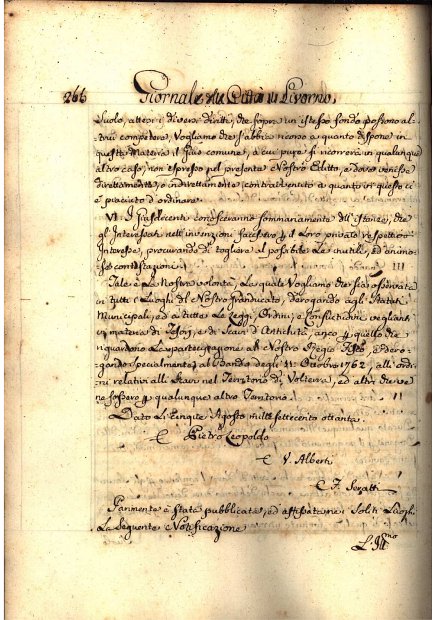 266 Giornale della Città di Livorno.
Suolo, attesi i diversi diritti, che sopra un istesso fondo possono al-
trui competere, Vogliamo che s'abbia ricorso a quanto dispone in
questa Materia il Gius comune, a cui pure si ricorrerà in qualunque
altro caso, non espresso nel presente Nostro Editto, e dove venisse
direttamente, o indirettamente contravvenuto a quanto in questo ci
è piaciuto d'ordinare.
VI. I Giusdicenti conosceranno sommariamente dell'istanze, che
gl'Interessati nell'invenzioni facessero p il Loro privato respettivo
Interesse, procurando di togliere al possibile Le inutili, ed animo-
se contestazioni.
Tale è La Nostra volontà, La quale Vogliamo che sia osservata
in tutti i Luoghi del Nostro Granducato, derogando agli Statuti
Municipali, ed a tutte Le Leggi, Ordini, e Consuetudini veglianti
in materia di Tesori, e di Scavi d'Antichità, anco p quello che
riguardono La partecipazione al Nostro Regio Fisco, e dero-
gando specialmente al Bando degli 11. Ottobre 1762, agli ordi-
ni relativi alli Scavi nel Territorio di Volterra, ed altri che ve
ne fossero p qualunque altro Territorio.
Dato Li cinque Agosto mille settecento ottanta.
Pietro Leopoldo
V. Alberti
F. Seratti
Parimente è stata pubblicata, ed affissata ne i Soliti Luoghi
La Seguente Notificazione
L'Ill.mo